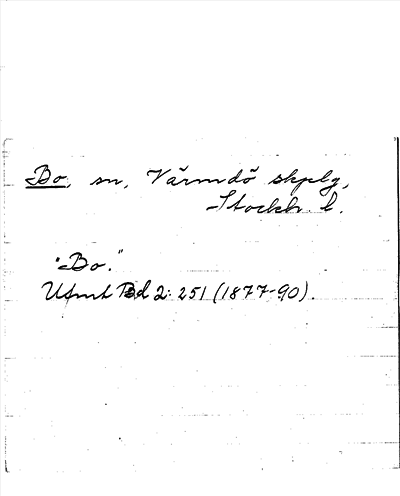 Bo, sn, Värmdö skplg,
Stockh. l.
"Bo."
Utmt Bd 2: 251 (1877-90).